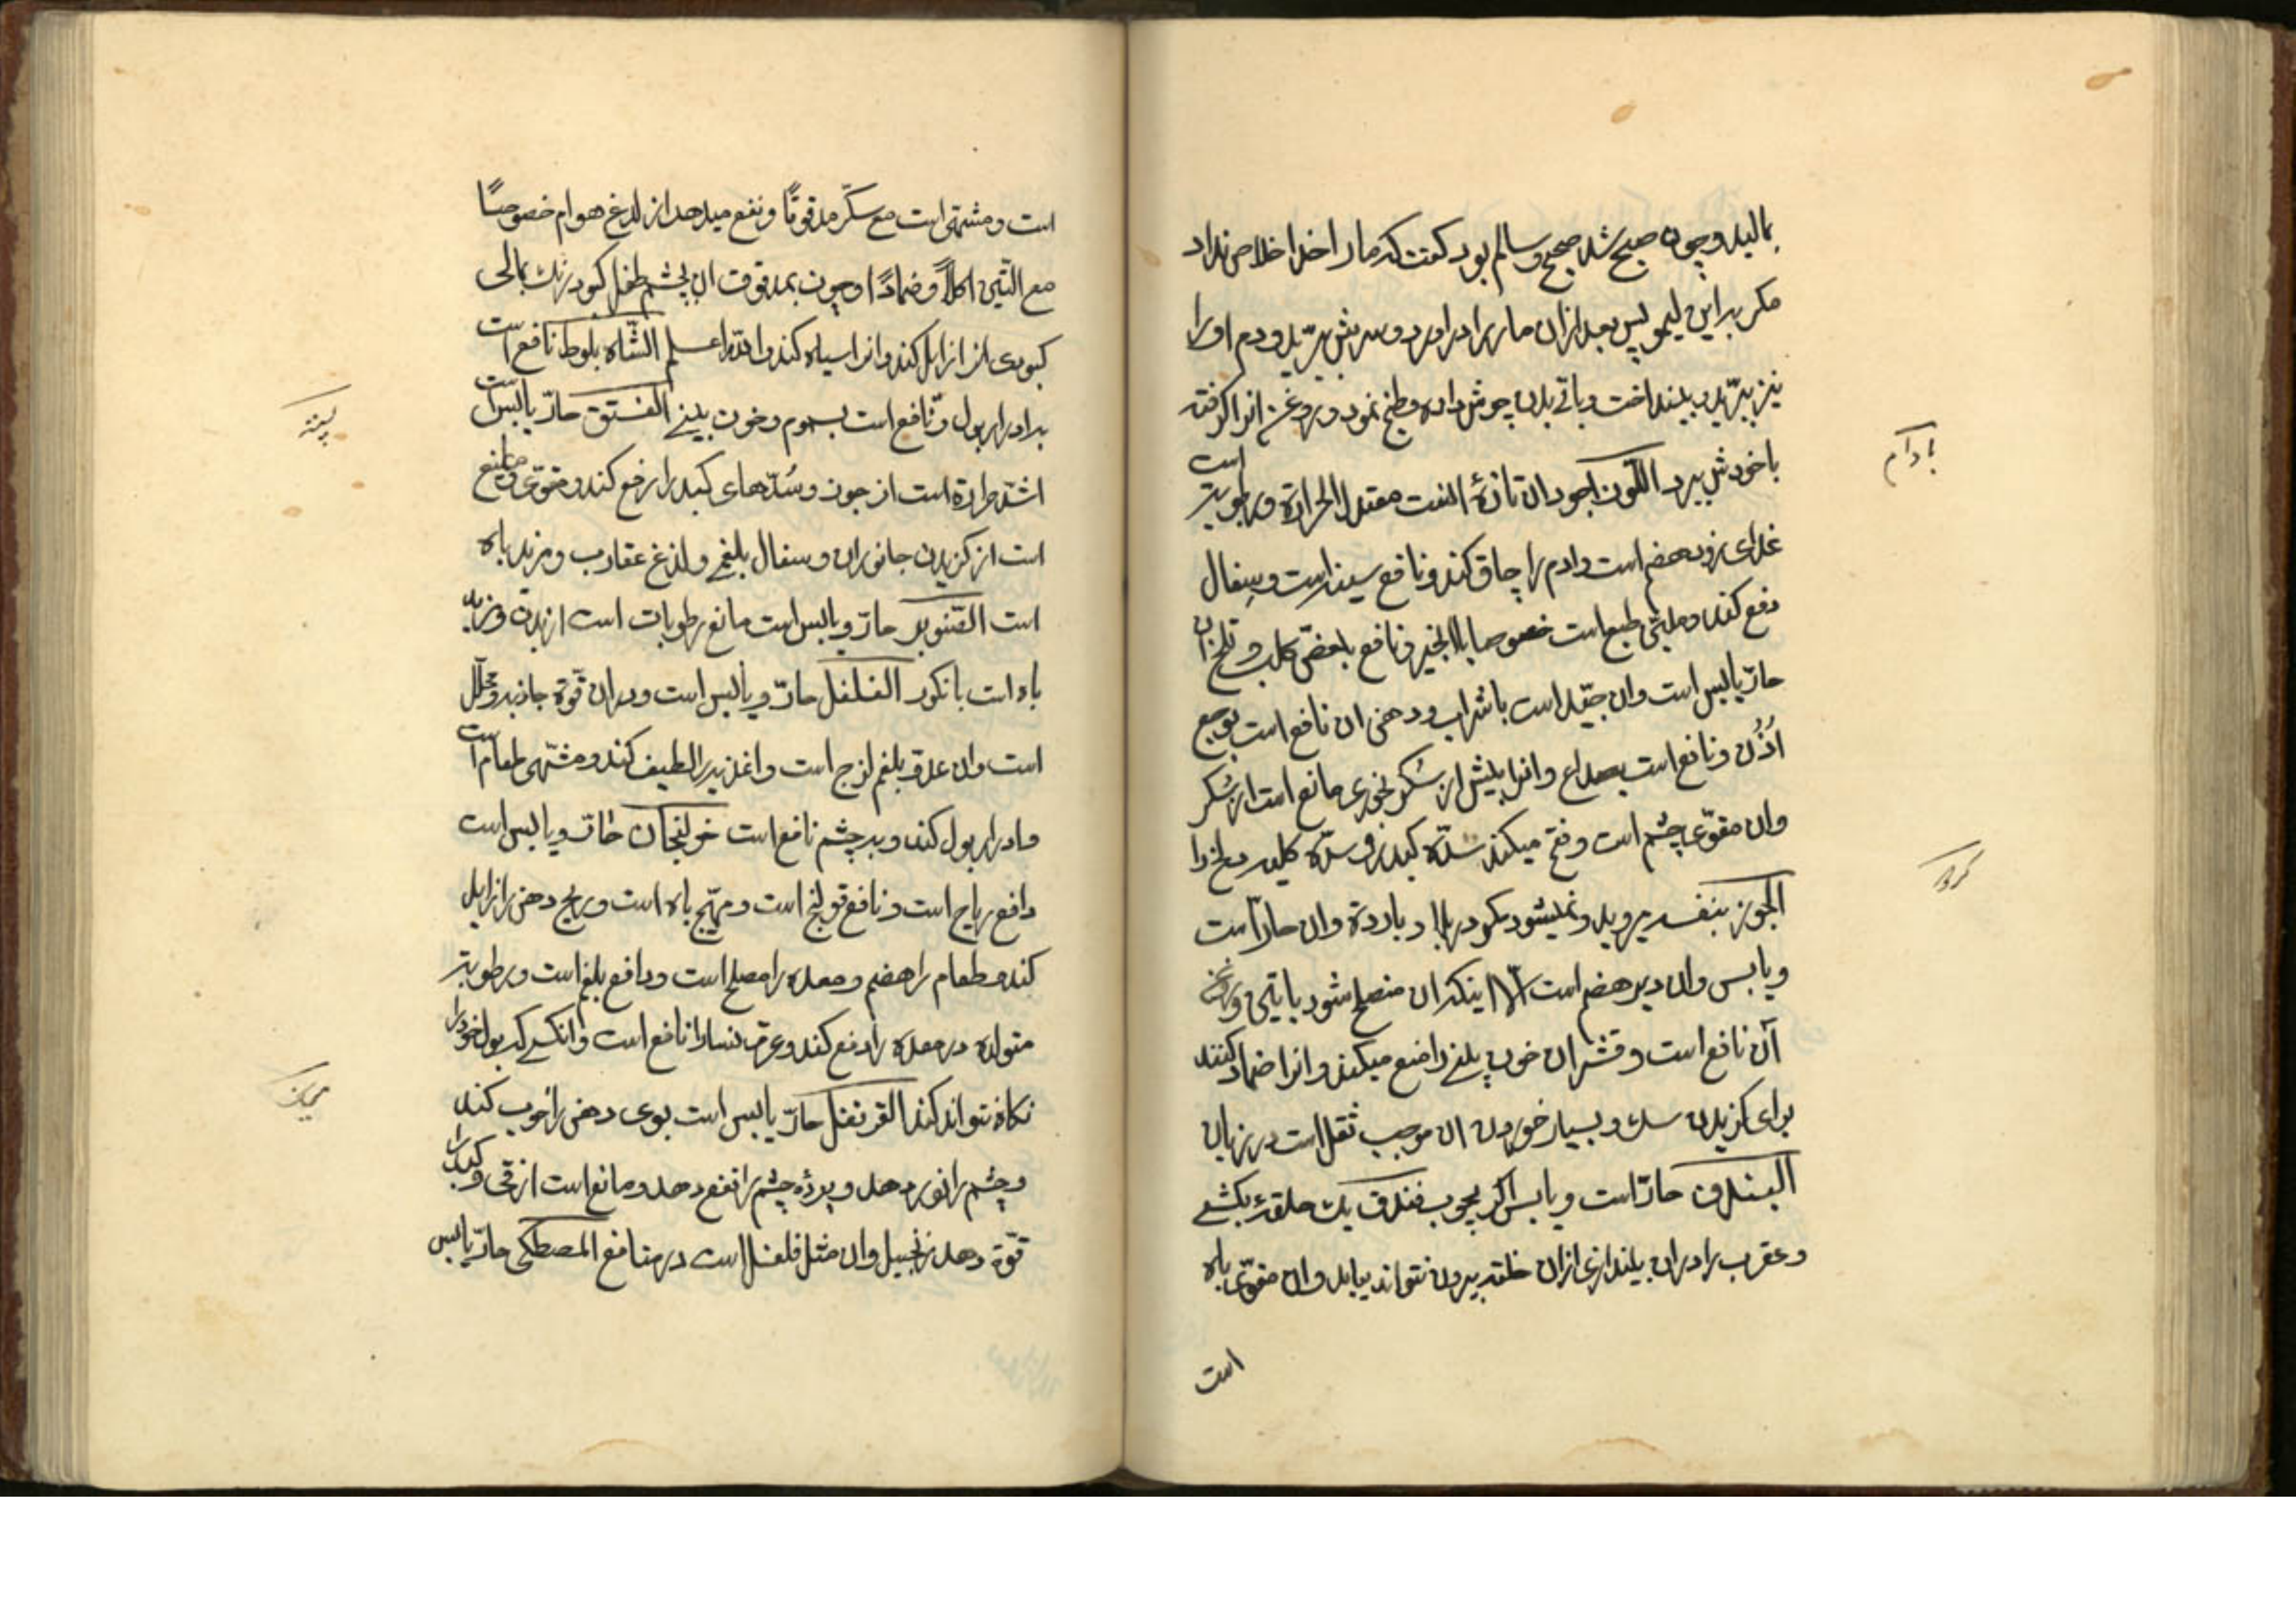 بمالید و چون صبح شد صحیح و سالم بود گفت که ما را خدا خلاص نداد
مکر بر این لیمو پس بعد از ان مار را در اورد و سرش ببرید و دم او را
نیز ببرید و بینداخت و باقی بدن جوش داده و طبخ نمود و روغن انرا کرفته
با خودش ببرد اللوز اجود ان تازهٔ است معتدل الحرارة و رطوبته است
غذای زود هضم است و ادم را چاق کند و نافع سینه است و سعال
دفع کند و ملین طبع است خصوصا با انجیر و نافع بعض کلب و تلخ ان
حارّ یابس است وان جیّد است با شراب و دهن ان نافع است بوجع
اُذُن و نافع است بصداع و انرا پیش از سُکر بخوری مانع است از سُکر
وان مقوّی چشم است و فتح میکند سدّه کبد و سدّه کلیه
الجوز بنفسه میروید و نمیشود مکر در بلاد بارده وان حارّ است
و یابس وان دیر هضم است الّا اینکه ان منصلح شود با تین و روغن
آن نافع است و قشر ان خون بینی را منع میکند و انرا ضماد کنند
برای کزیدن سک و بسیار خوردن ان موجب ثقل است در زبان
البندق حارّ است و یابس اکر بچوب فندق یک حلقهٔ بکشی
و عقرب را در ان بیندازی از ان حلقه بیرون نتواند بیاید وان مقوّی باه
است
بادام
کردو
است و مشتهی است مع سکّر مدقوقًا و نفع میدهد از لدغ هوام خصوصًا
مع التّین اکلًا و ضمادًا و چون بمدقوق ان بچشم طفل کبود رنک بمالی
کبودی انرا زایل کند وانرا سیاه کند والله اعلم الشّاه بلوط نافع است
بادرار بول و نافع است بسموم و خون بینی الفستق حارّ یابس است
اشدّ حرارة است از جوز و سُدّهای کبد را رفع کند و مقوّی و مانع
است از کزیدن جانوران و سعال بلغمی و لدغ عقارب و مزید باه
است الصّنوبر حارّ و یابس است مانع رطوبات است از بدن و مزید
باه است با انکور الفلفل حارّ و یابس است و در ان قوّة جاذبه و محلّل
است وان بلغم لزج است و اغذیه را لطیف کند و مشتهی طعام است
و ادرار بول کند و بدرد چشم نافع است خولنجان حارّ و یابس است
دافع ریاح است و نافع قولنج است و مهیّج باه است و ریح دهن را زایل
کند و طعام را هضم و معده را مصلح است و دافع بلغم است و رطوبته
متولده در معده را دفع کند و عرق نسا را نافع است وانکسی که بول خود را
نکاه نتواند کند القرنفل حارّ یابس است بوی دهن را خوب کند
و چشم را نور دهد و پردهٔ چشم را نفع دهد و مانع است از قی و کبد را
قوّة دهد زنجبیل وان مثل فلفل است در منافع المصطکی حارّ یابس
پسته